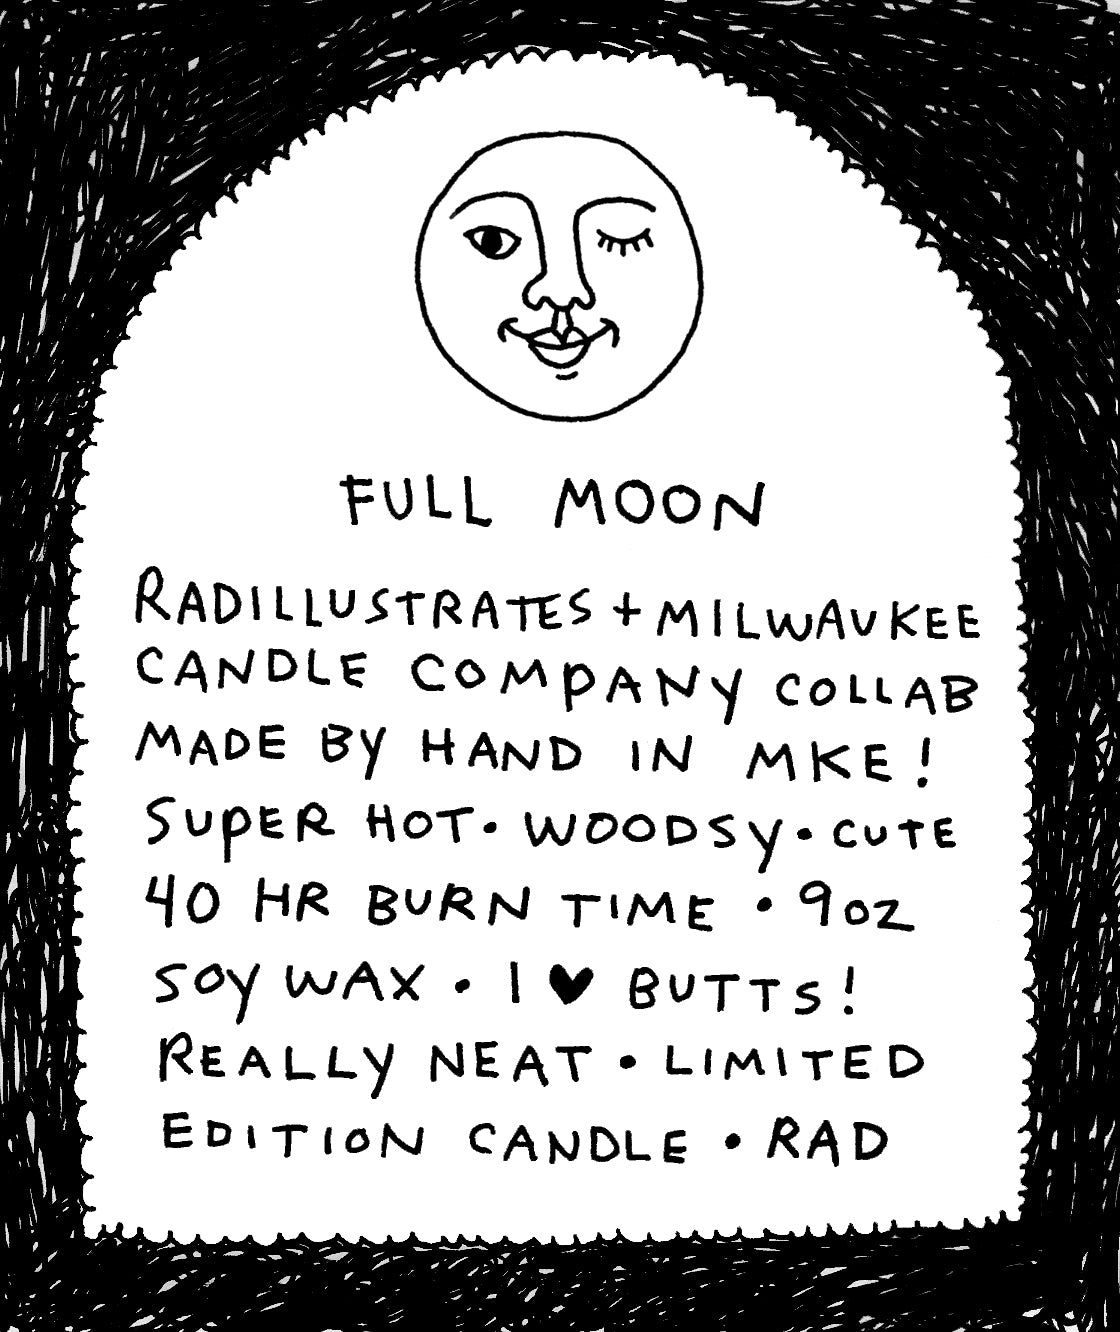 FULL MOON
RADILLUSTRATES + MILWAUKEE
CANDLE COMPANY COLLAB
MADE BY HAND IN MKE!
SUPER HOT • WOODSY • CUTE
40 HR BURN TIME • 9oz
SOY WAX • I ♥ BUTTS!
REALLY NEAT • LIMITED
EDITION CANDLE • RAD